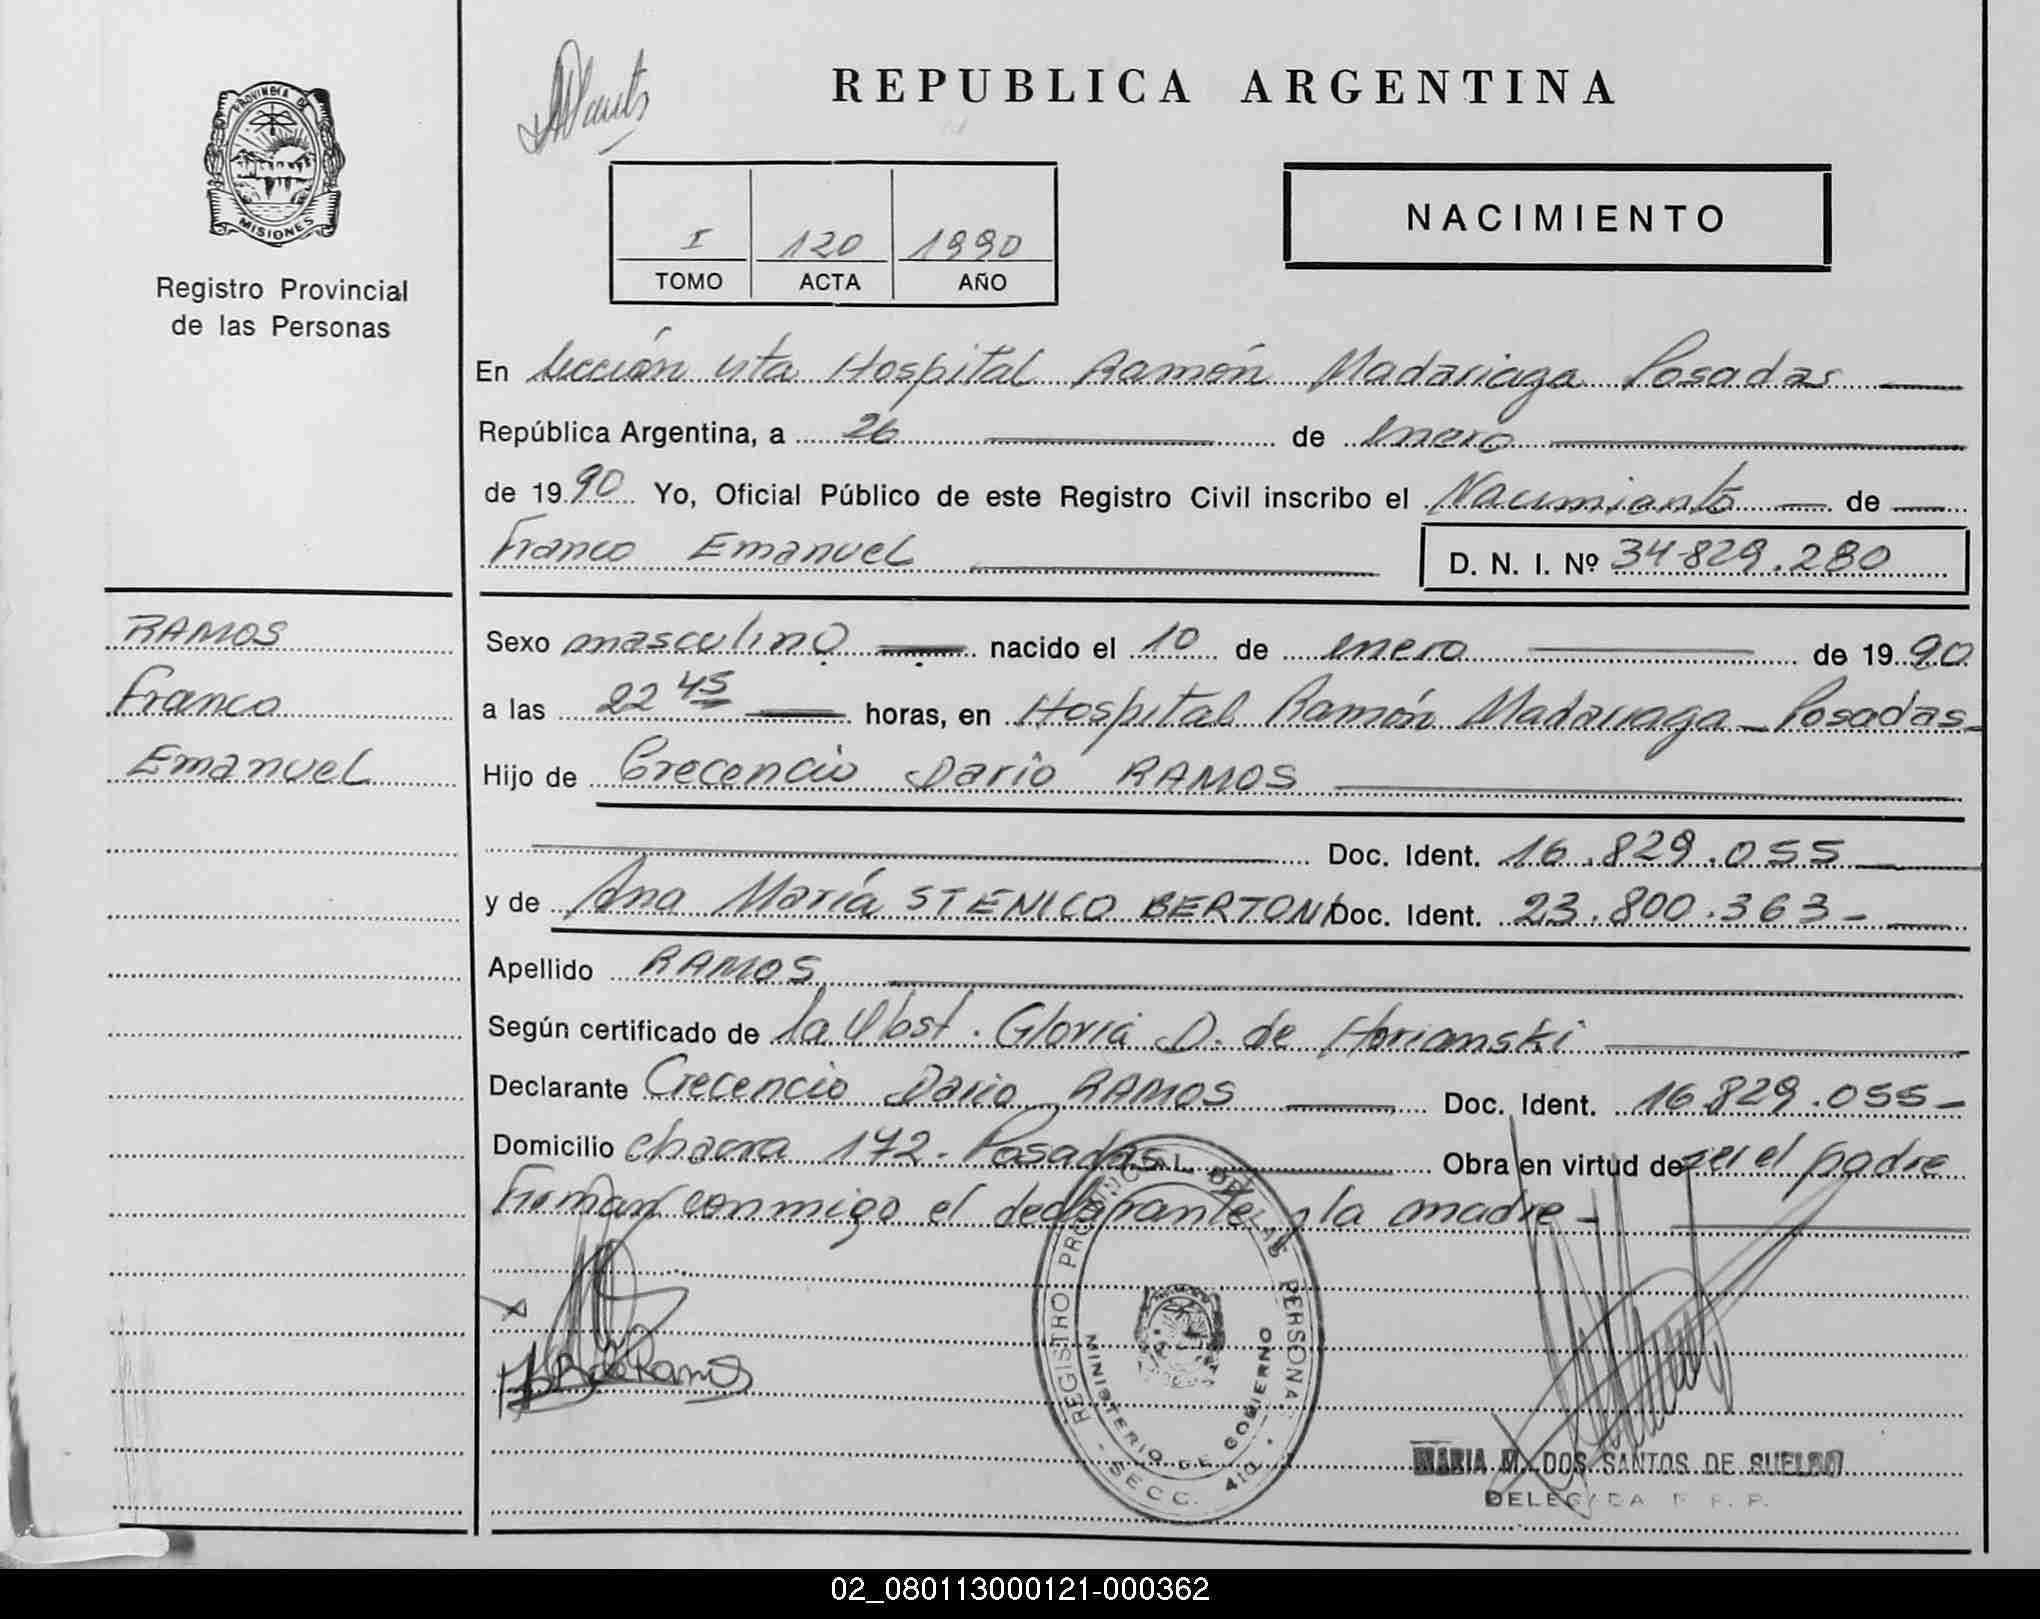 REPUBLICA ARGENTINA
PROVINCIA DE
MISIONES
Registro Provincial
de las Personas
NACIMIENTO
I 120 1990
TOMO ACTA AÑO
En Sección 4ta Hospital Ramón Madariaga Posadas
República Argentina, a 26 de enero
de 1990 Yo, Oficial Público de este Registro Civil inscribo el Nacimiento de
Franco Emanuel
D. N. I. Nº 34.829.280
RAMOS
Franco
Emanuel
Sexo masculino nacido el 10 de enero de 1990
a las 22 45 horas, en Hospital Ramón Madariaga - Posadas -
Hijo de Crecencio Darío RAMOS
Doc. Ident. 16.829.055
y de Ana María STENICO BERTONI Doc. Ident. 23.800.363 -
Apellido RAMOS
Según certificado de la Obst. Gloria D. de Horianski
Declarante Crecencio Dario RAMOS Doc. Ident. 16.829.055 -
Domicilio chacra 172 - Posadas Obra en virtud de ser el padre
Firman conmigo el declarante y la madre -
REGISTRO PROVINCIAL DE LAS PERSONAS
MINISTERIO DE GOBIERNO
- SECC. 4ta. -
MARIA M. DOS SANTOS DE SUELDO
DELEGADA
02_080113000121-000362